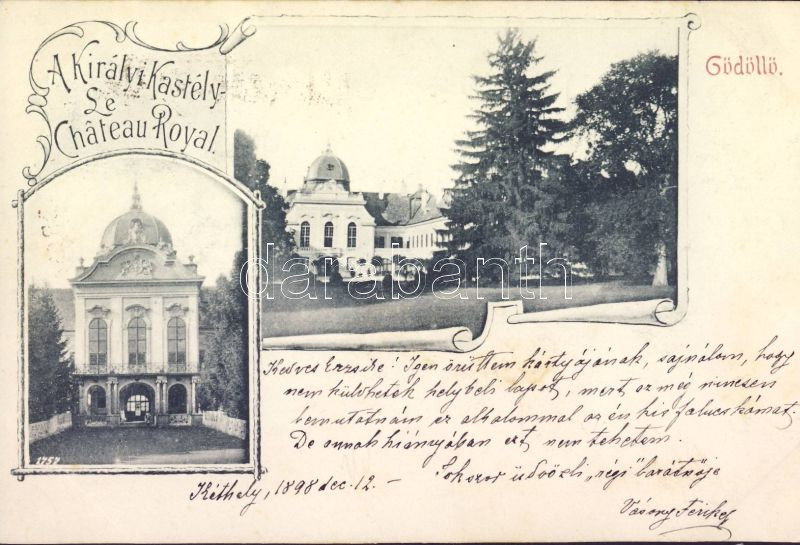 A Királyi Kastély
Le
Château Royal.
Gödöllő.
darabanth
Kedves Erzsike! Igen örültem kártyájának, sajnálom, hogy
nem küldhetek helybeli lapot, mert az még nincsen
bemutatnám ez alkalommal az én kis falucskámat.
De annak hiányában ezt nem tehetem.
Sokszor üdvözli „régi" barátnője
Kéthely, 1898 dec. 12. –
1757